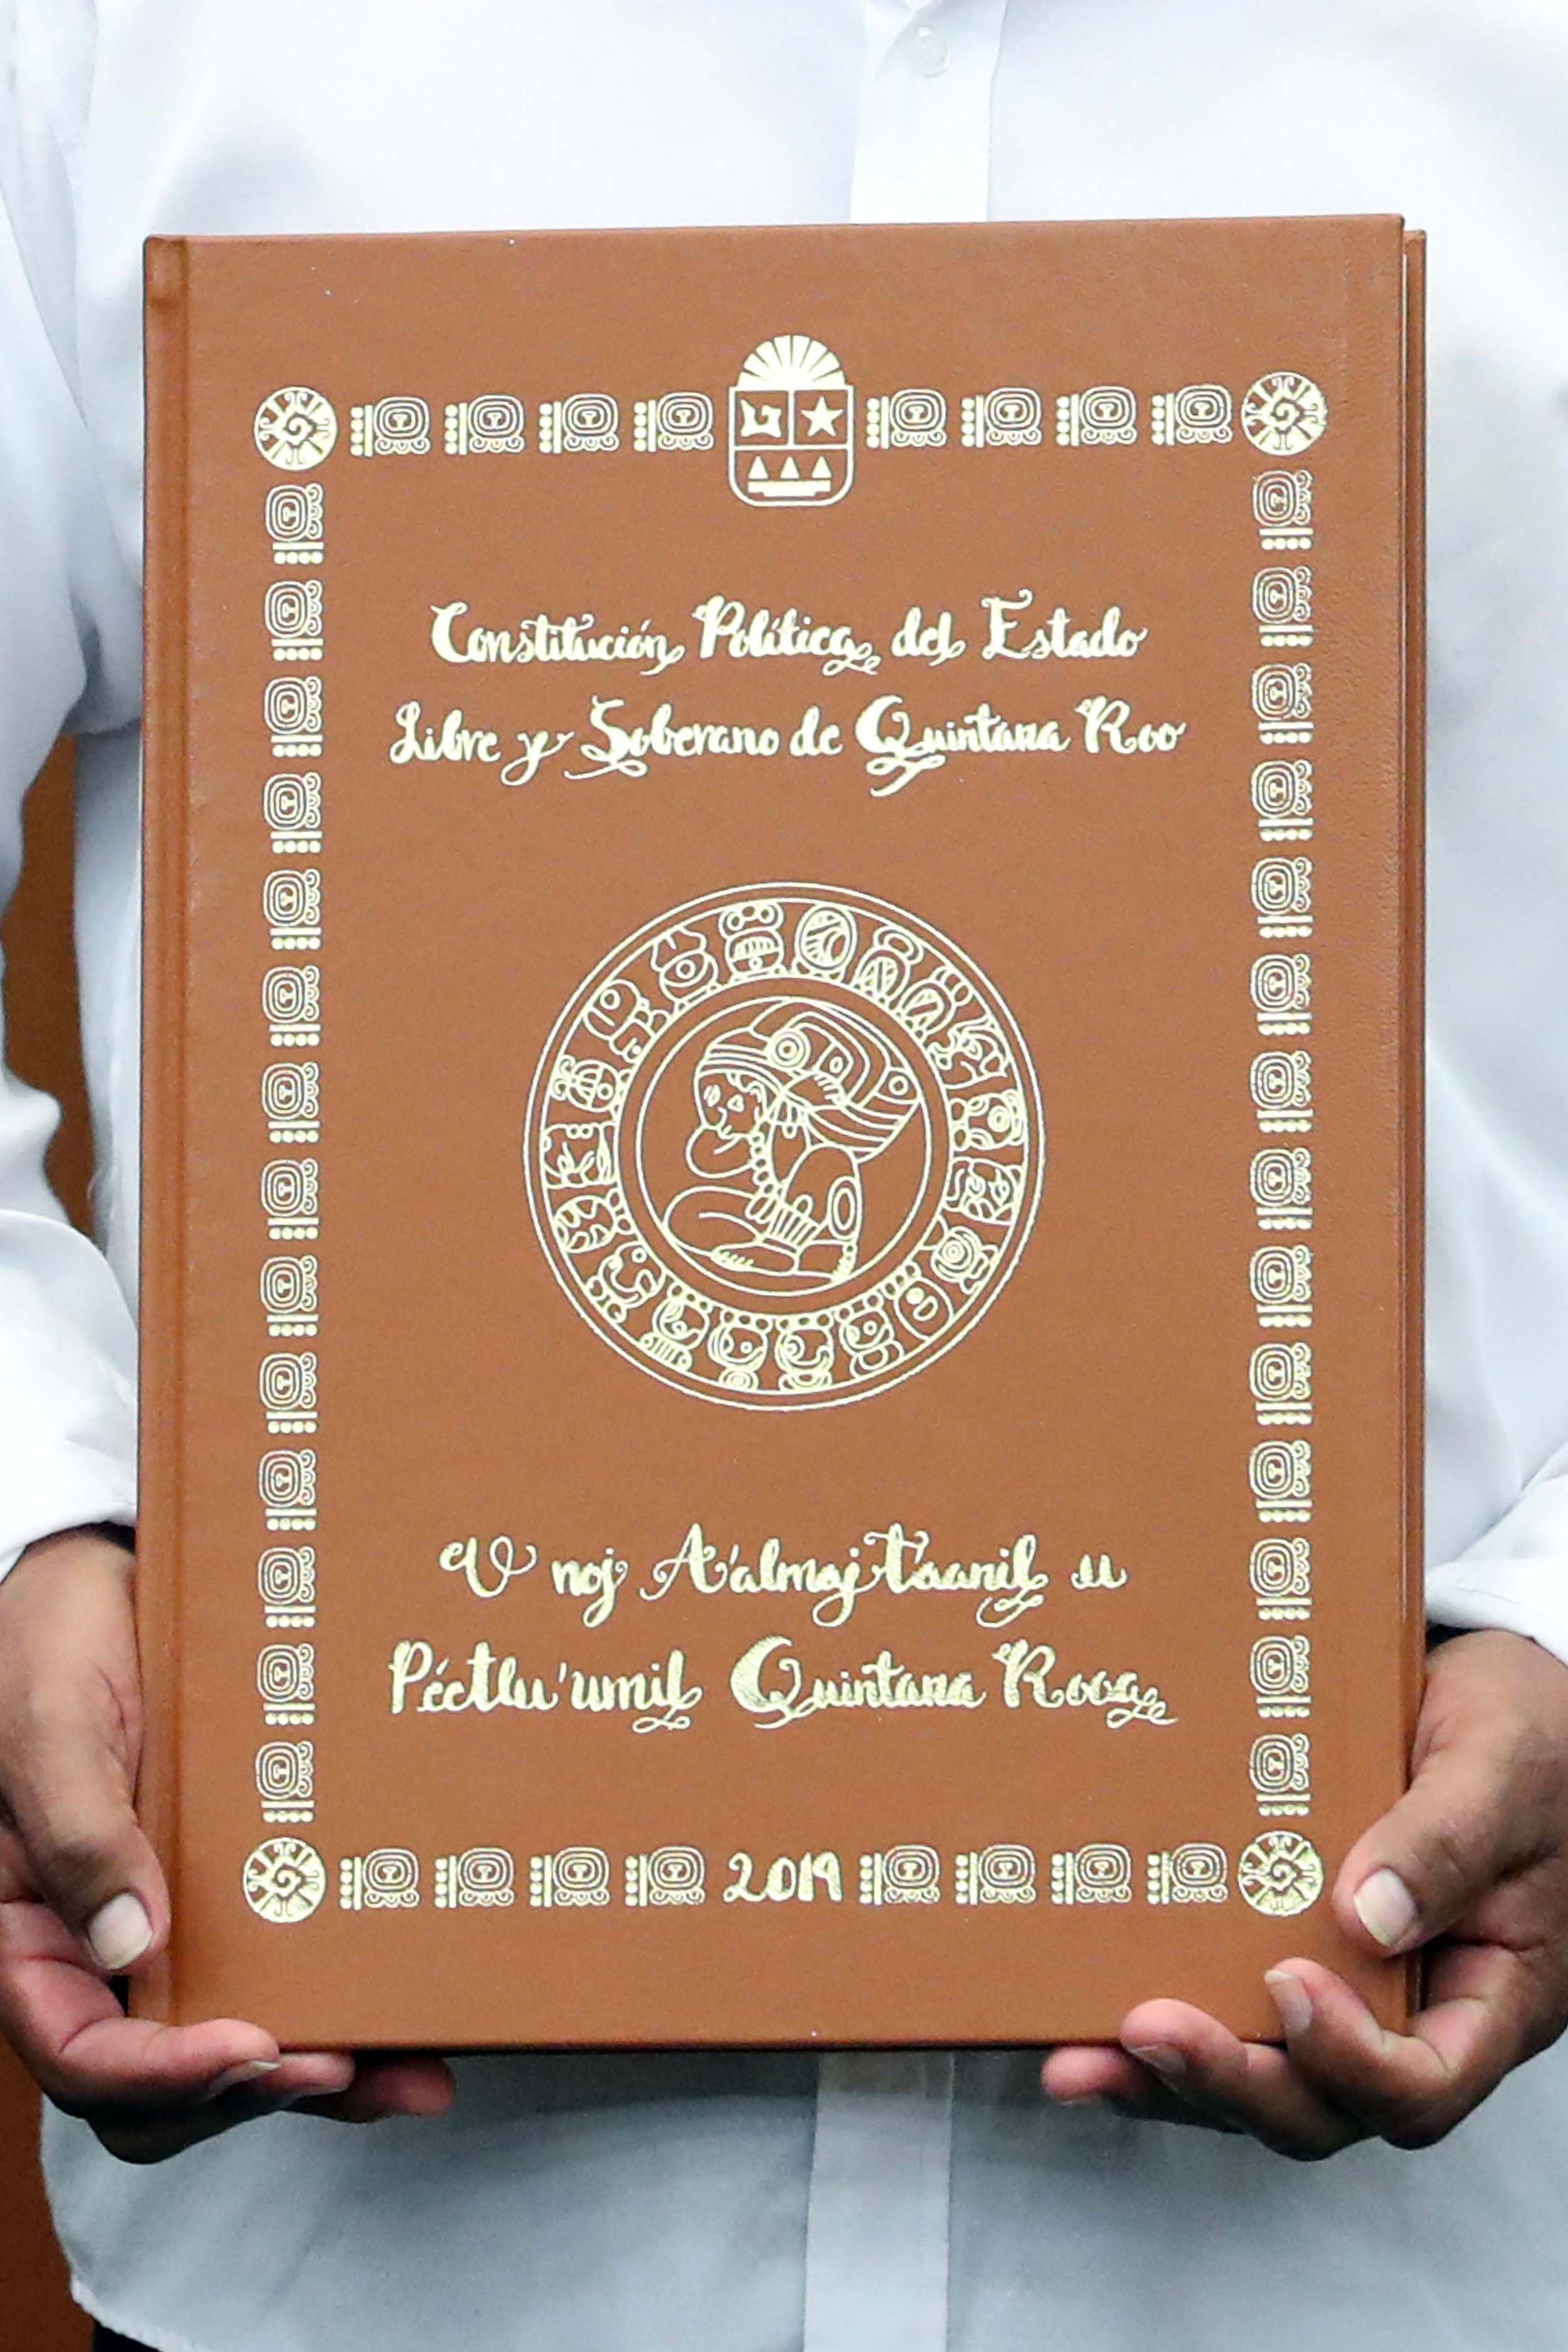 Constitución Política del Estado
Libre y Soberano de Quintana Roo
U noj A'almajt'aanil u
Péetlu'umil Quintana Rooe
2019